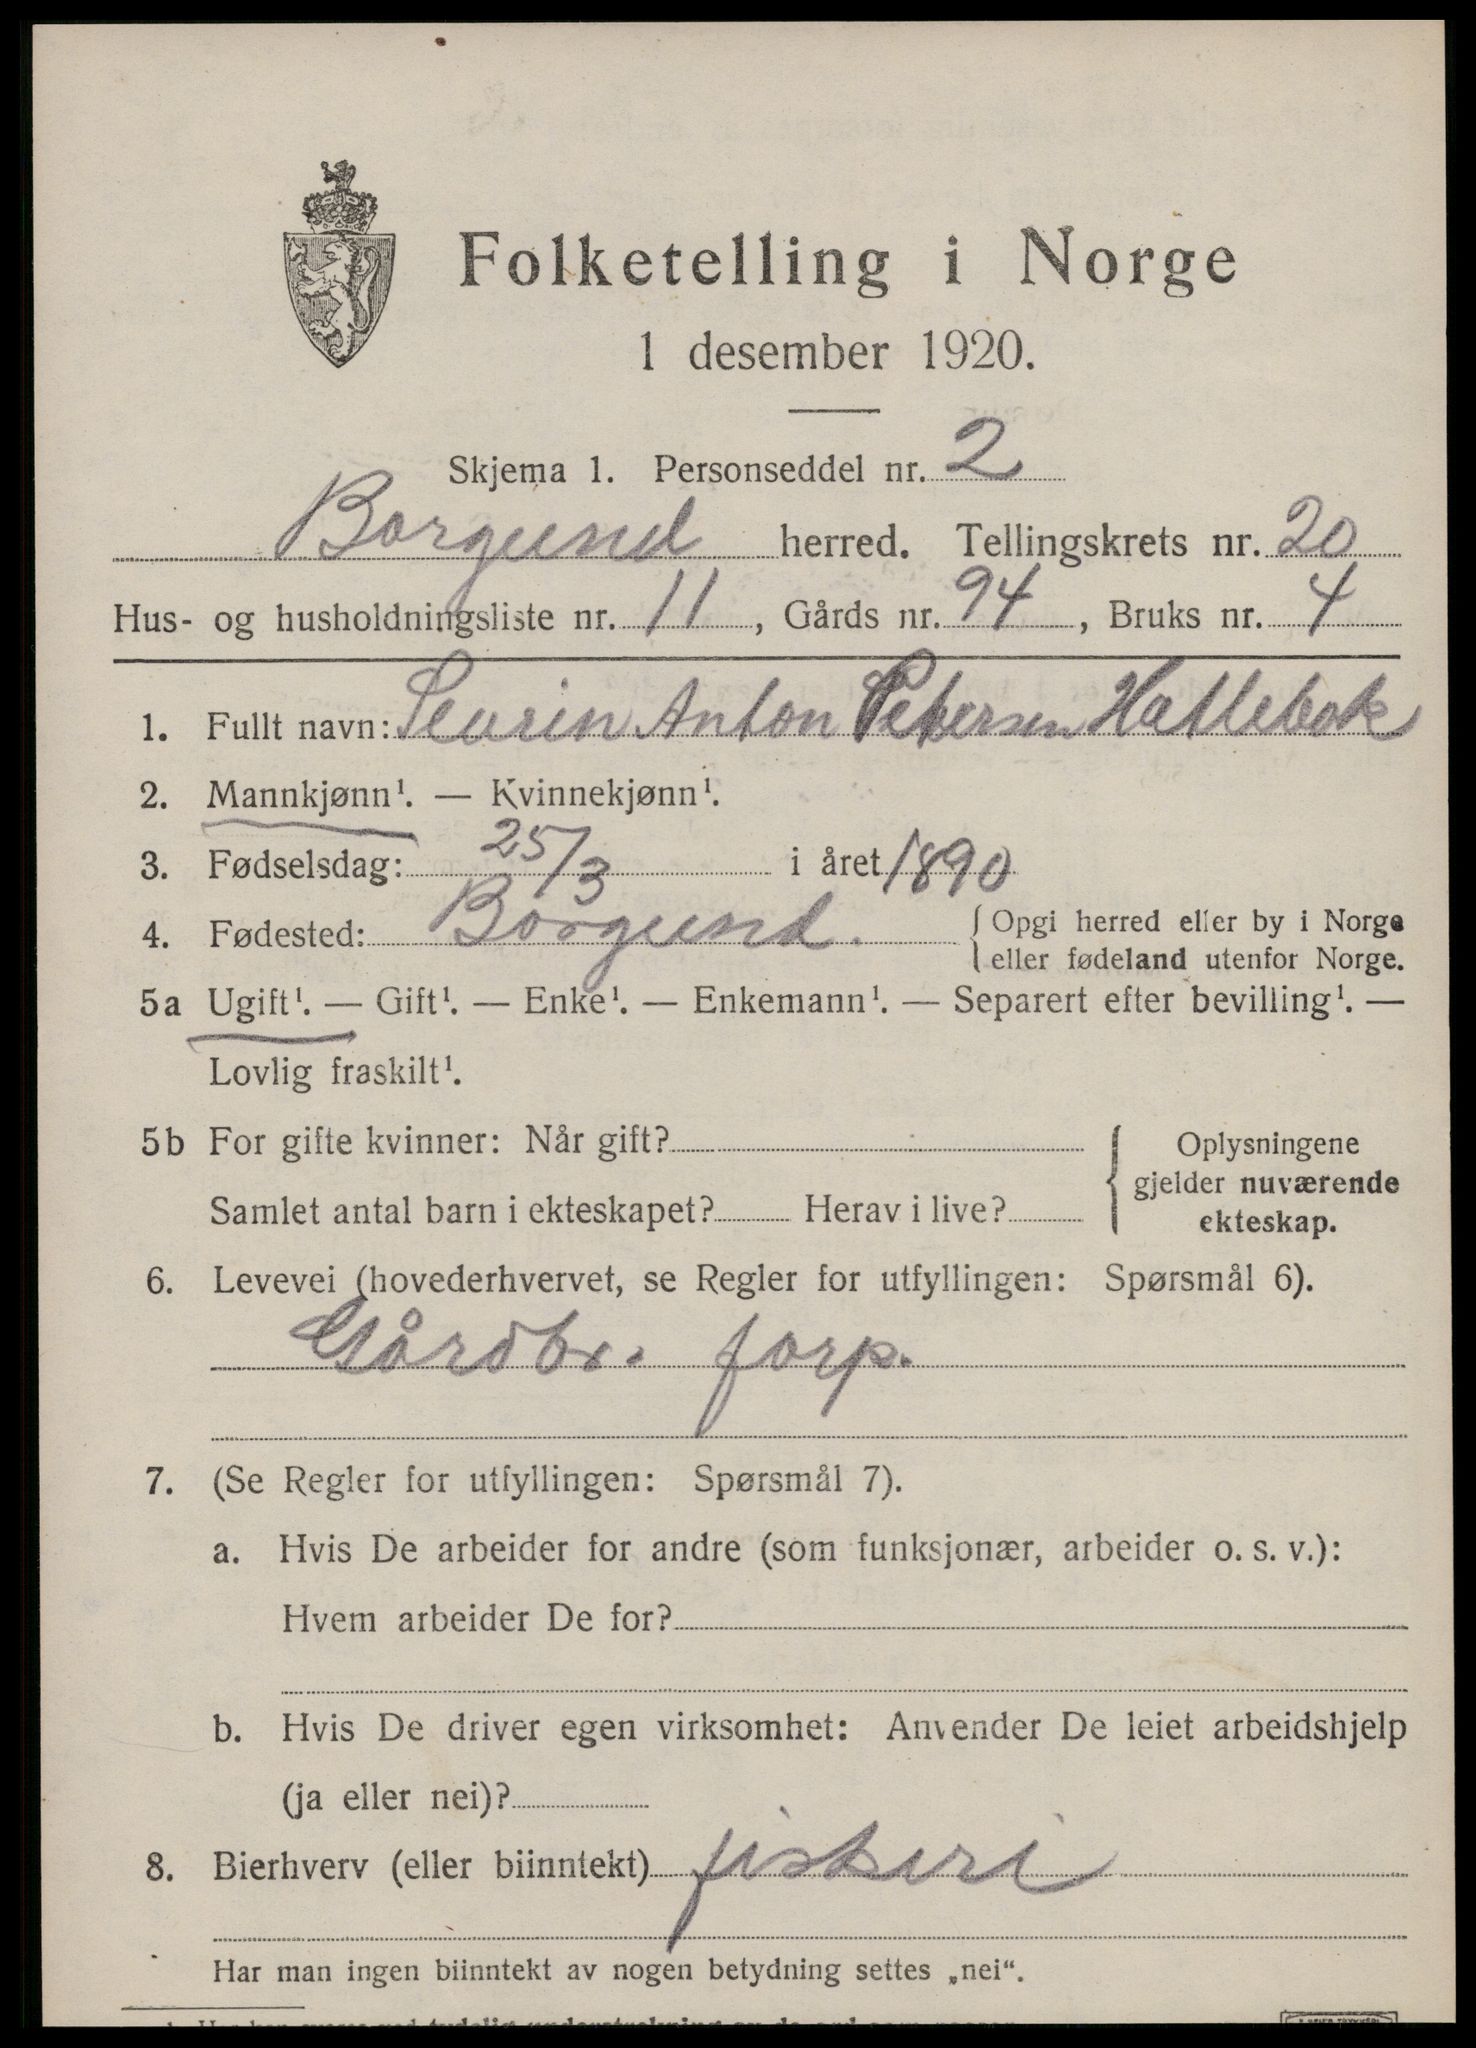 Folketelling i Norge
1 desember 1920.
Skjema 1. Personseddel nr. 2
Borgund herred. Tellingskrets nr. 20
Hus- og husholdningsliste nr. 11, Gårds nr. 94, Bruks nr. 4
1. Fullt navn: Sevrin Anton Petersen Hatlebak
2. Mannkjønn¹. — Kvinnekjønn¹.
3. Fødselsdag: 25/3 i året 1890
4. Fødested: Borgund. { Opgi herred eller by i Norge
eller fødeland utenfor Norge.
5a Ugift¹. — Gift¹. — Enke¹. — Enkemann¹. — Separert efter bevilling¹. —
Lovlig fraskilt¹.
5b For gifte kvinner: Når gift?
Samlet antal barn i ekteskapet? Herav i live?
{ Oplysningene
gjelder nuværende
ekteskap.
6. Levevei (hovederhvervet, se Regler for utfyllingen: Spørsmål 6).
Gårdbr. forp.
7. (Se Regler for utfyllingen: Spørsmål 7).
a. Hvis De arbeider for andre (som funksjonær, arbeider o. s. v.):
Hvem arbeider De for?
b. Hvis De driver egen virksomhet: Anvender De leiet arbeidshjelp
(ja eller nei)?
8. Bierhverv (eller biinntekt) fiskeri
Har man ingen biinntekt av nogen betydning settes „nei“.